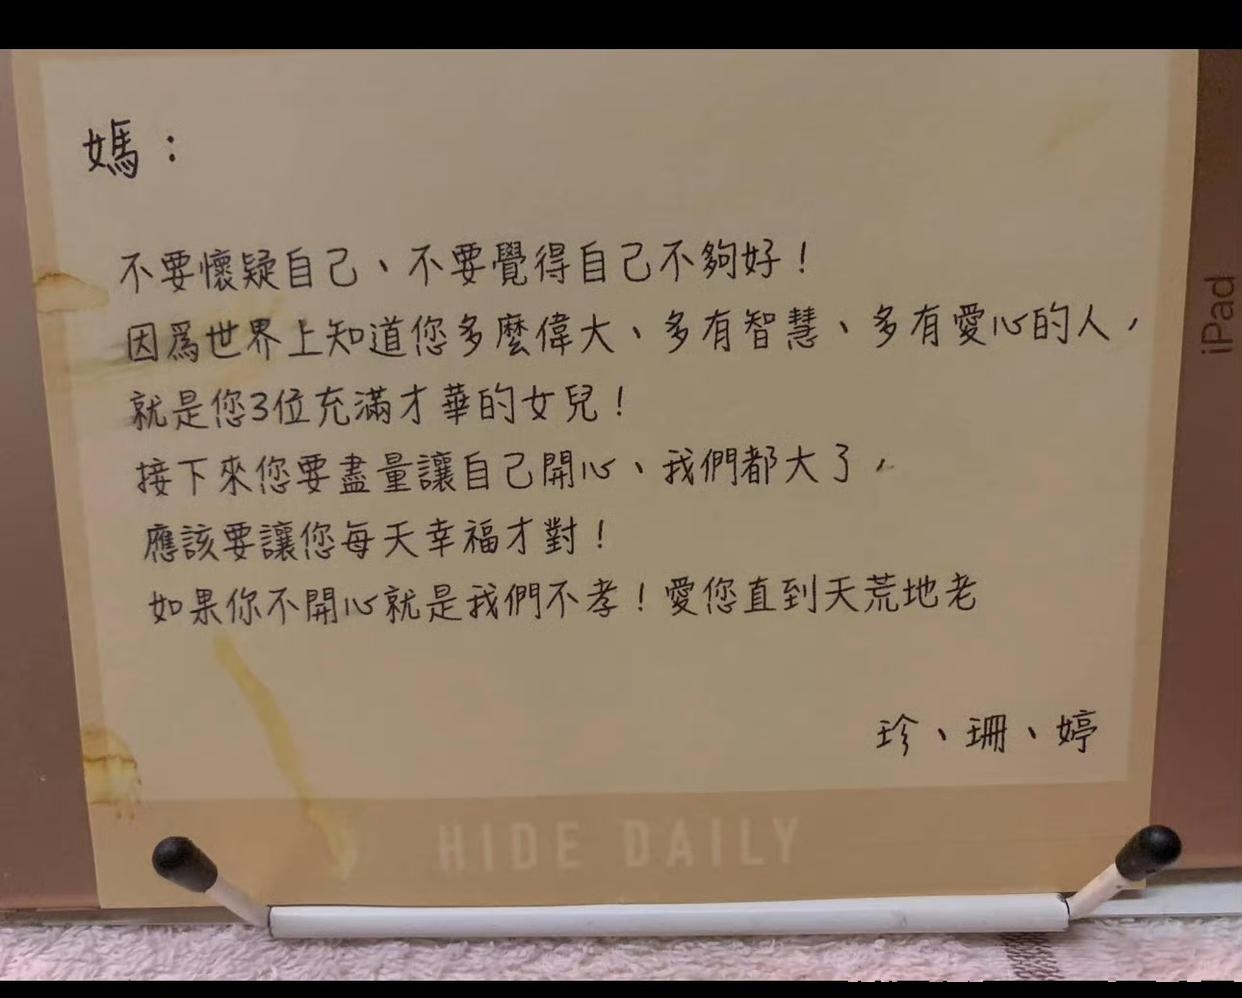 媽：
不要懷疑自己、不要覺得自己不夠好！
因爲世界上知道您多麼偉大、多有智慧、多有愛心的人，
就是您3位充滿才華的女兒！
接下來您要盡量讓自己開心、我們都大了，
應該要讓您每天幸福才對！
如果你不開心就是我們不孝！愛您直到天荒地老
珍、珊、婷
HIDE DAILY
iPad